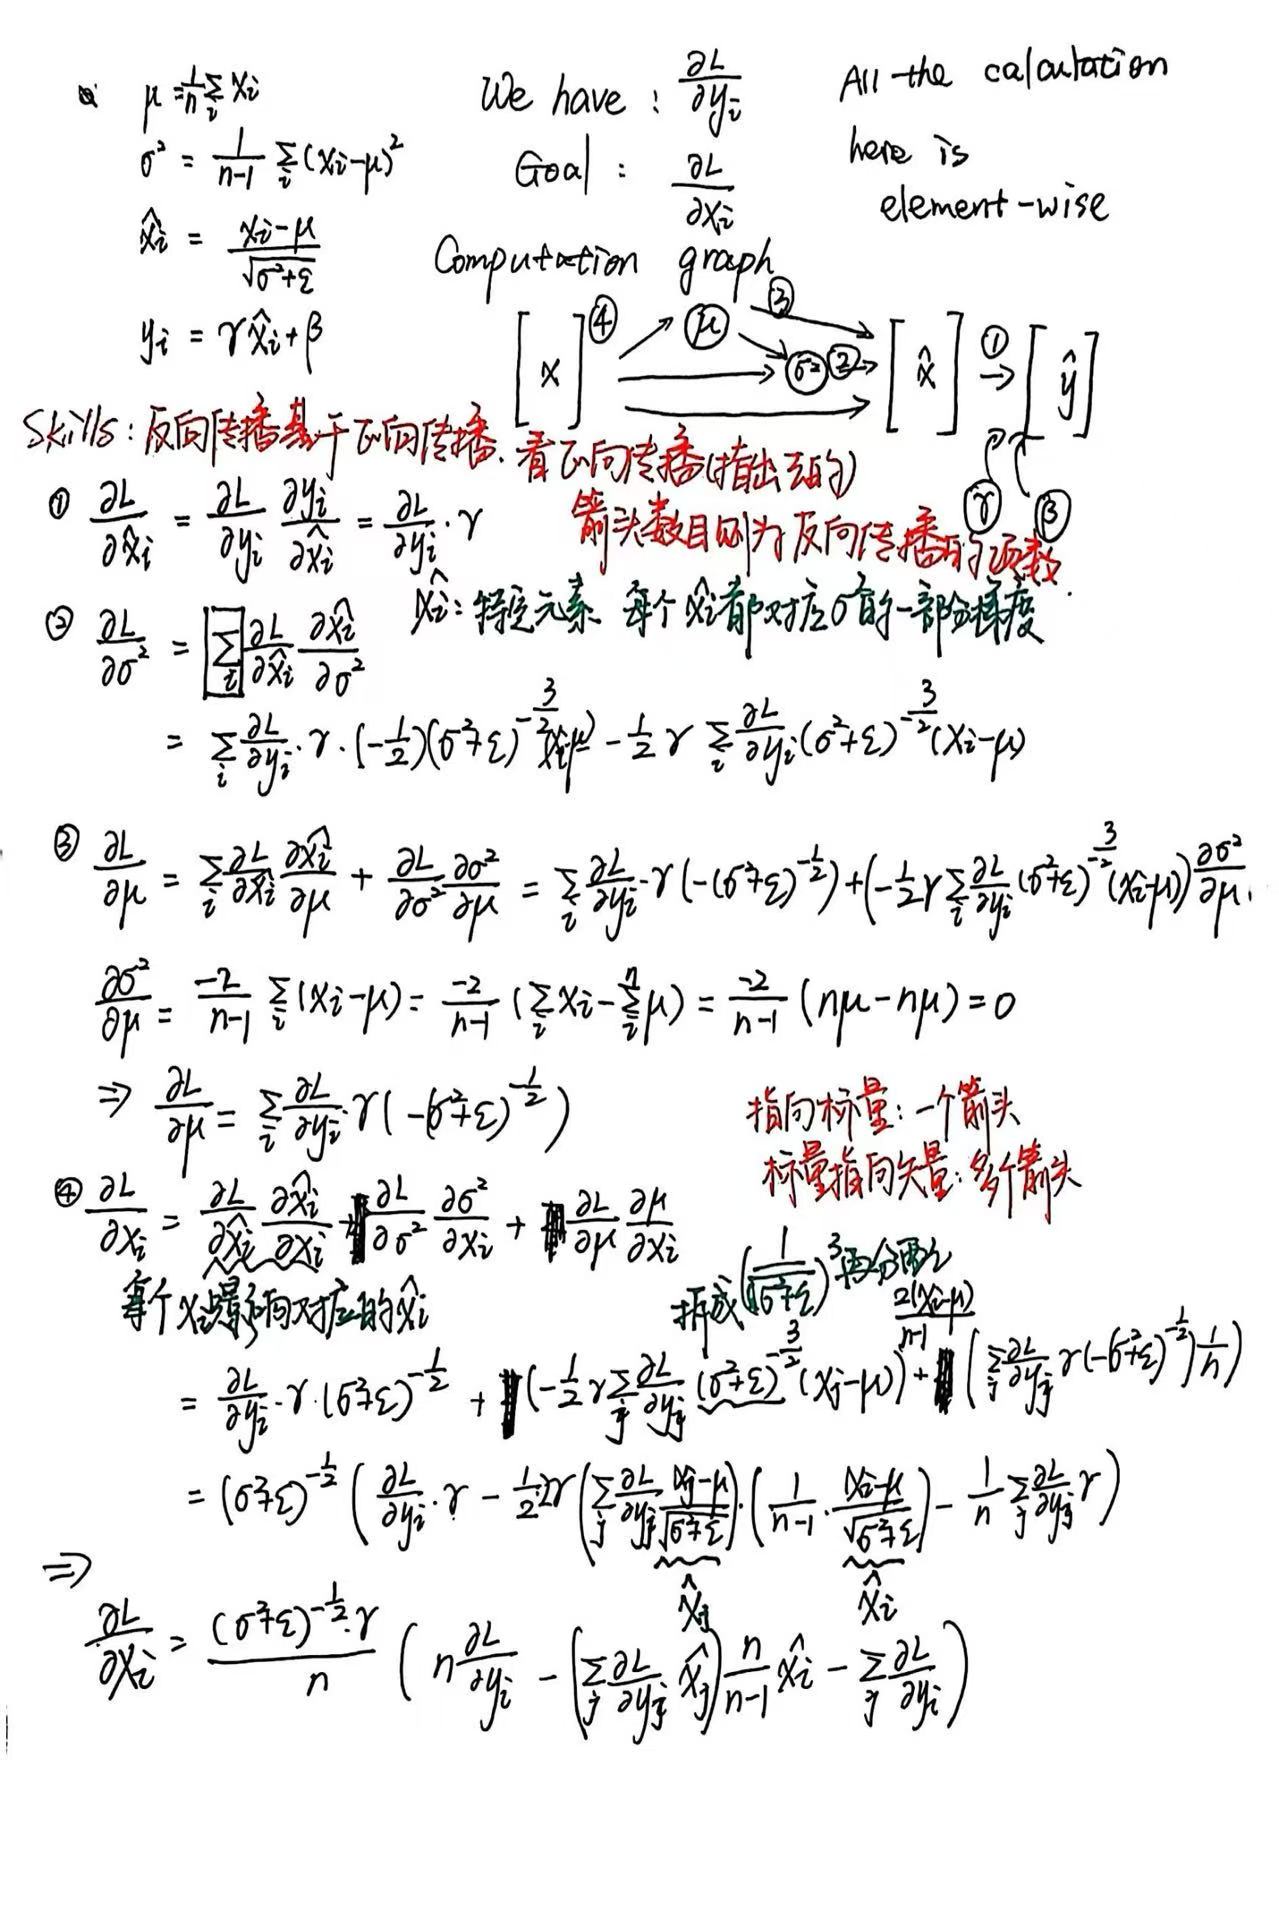 μ = 1/n Σ_i x_i
σ² = 1/(n-1) Σ_i (x_i-μ)²
x̂_i = (x_i-μ)/√(σ²+ε)
y_i = γx̂_i+β
We have : ∂L/∂y_i
Goal : ∂L/∂x_i
All the calculation
here is
element-wise
Computation graph
[x] ④ → μ ③ → σ² ② → [x̂] ① → [ŷ]
γ β
Skills: 反向传播基于正向传播. 看正向传播(指出去的)
箭头数目则为反向传播的项数
① ∂L/∂x̂_i = ∂L/∂y_i ∂y_i/∂x̂_i = ∂L/∂y_i · γ
x̂_i: 特定元素 每个 x̂_i 都对应σ²的一部分梯度
② ∂L/∂σ² = Σ_i ∂L/∂x̂_i ∂x̂_i/∂σ²
= Σ_i ∂L/∂y_i · γ · (-1/2)(σ²+ε)^(-3/2) (x_i-μ) = -1/2 γ Σ_i ∂L/∂y_i (σ²+ε)^(-3/2) (x_i-μ)
③ ∂L/∂μ = Σ_i ∂L/∂x̂_i ∂x̂_i/∂μ + ∂L/∂σ² ∂σ²/∂μ = Σ_i ∂L/∂y_i · γ (-(σ²+ε)^(-1/2)) + (-1/2 γ Σ_i ∂L/∂y_i (σ²+ε)^(-3/2) (x_i-μ)) ∂σ²/∂μ.
∂σ²/∂μ = -2/(n-1) Σ_i (x_i-μ) = -2/(n-1) (Σ_i x_i - Σ_i^n μ) = -2/(n-1) (nμ-nμ) = 0
⇒ ∂L/∂μ = Σ_i ∂L/∂y_i γ (-(σ²+ε)^(-1/2))
指向标量: 一个箭头
标量指向矢量: 多个箭头
④ ∂L/∂x_i = ∂L/∂x̂_i ∂x̂_i/∂x_i + ∂L/∂σ² ∂σ²/∂x_i + ∂L/∂μ ∂μ/∂x_i
每个 x_i 只影响对应的 x̂_i
拆成 (1/√(σ²+ε))³
= ∂L/∂y_i · γ · (σ²+ε)^(-1/2) + (-1/2 γ Σ_j ∂L/∂y_j (σ²+ε)^(-3/2) (x_j-μ)) 2(x_i-μ)/(n-1) + (Σ_j ∂L/∂y_j γ (-(σ²+ε)^(-1/2)) 1/n)
= (σ²+ε)^(-1/2) (∂L/∂y_i · γ - 1/2·2γ (Σ_j ∂L/∂y_j (x_j-μ)/√(σ²+ε)) · (1/(n-1) · (x_i-μ)/√(σ²+ε)) - 1/n Σ_j ∂L/∂y_j γ)
x̂_j x̂_i
⇒
∂L/∂x_i = (σ²+ε)^(-1/2) · γ / n (n ∂L/∂y_i - (Σ_j ∂L/∂y_j x̂_j) n/(n-1) x̂_i - Σ_j ∂L/∂y_i)